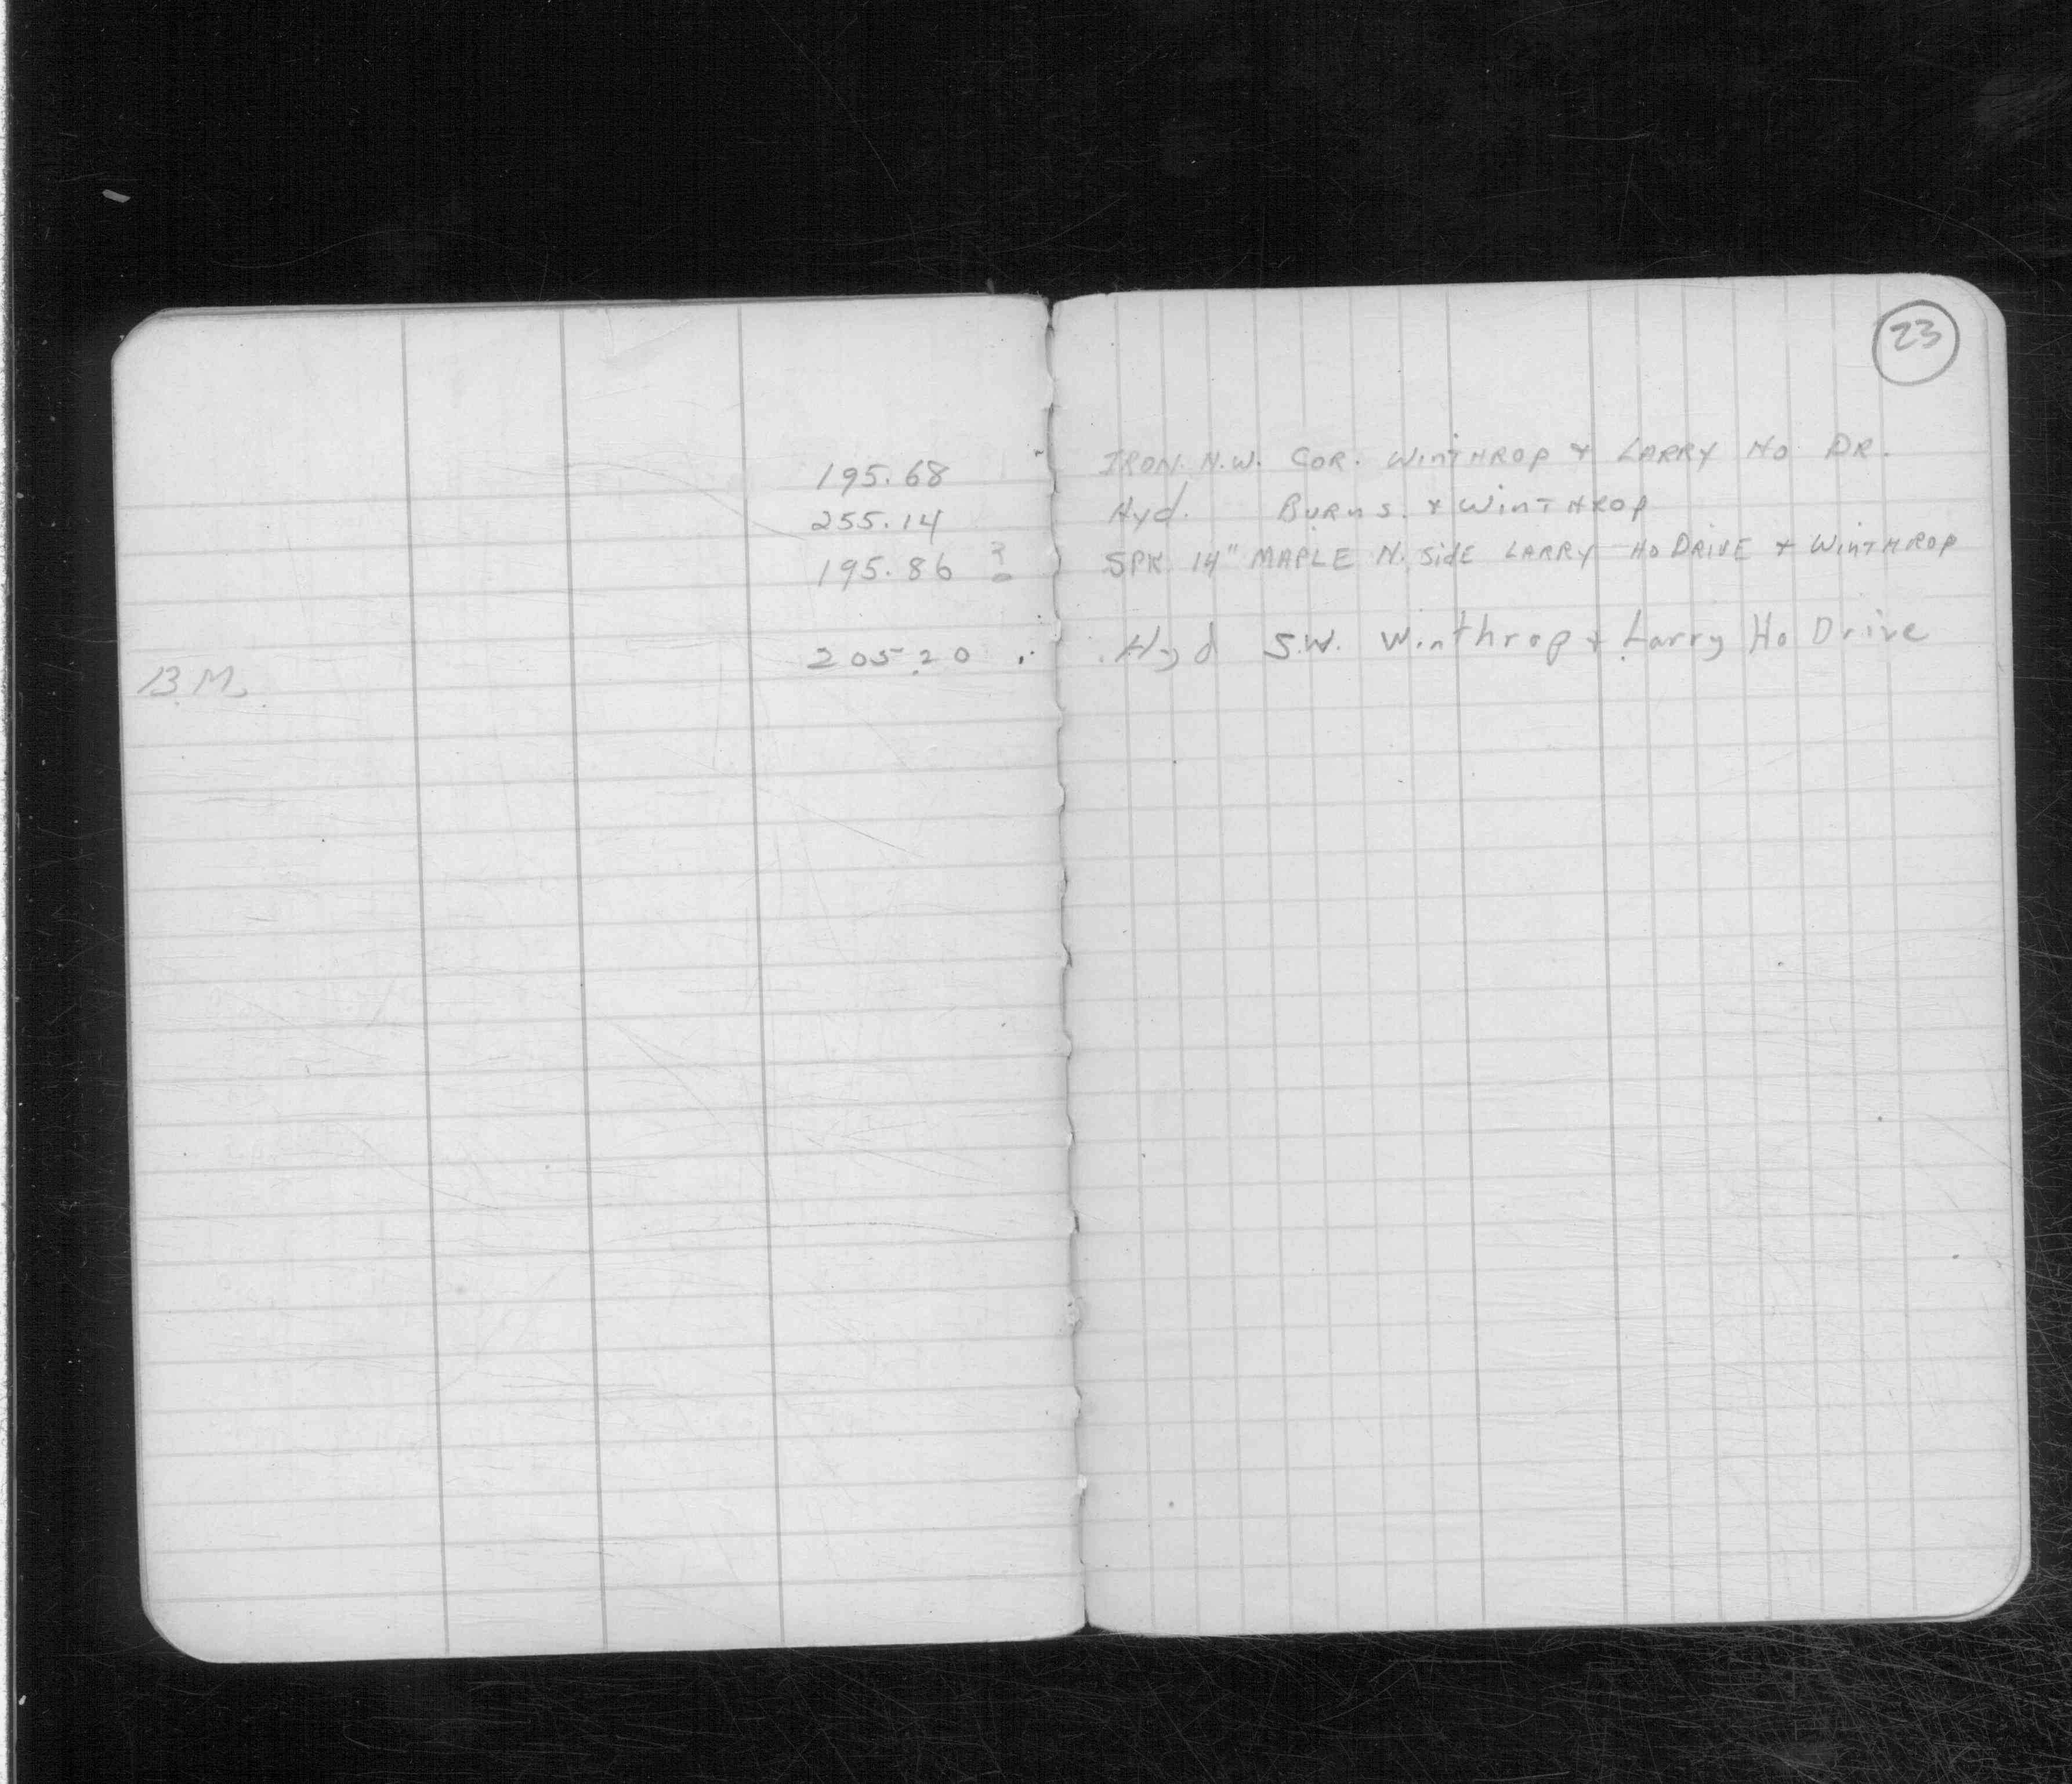 23
195.68 IRON. N.W. COR. WINTHROP & LARRY HO DR.
255.14 Hyd. BURNS. & WINTHROP
195.86 ? SPK 14" MAPLE N. SIDE LARRY HO DRIVE & WINTHROP
205.20 Hyd S.W. Winthrop & Larry Ho Drive
B.M.